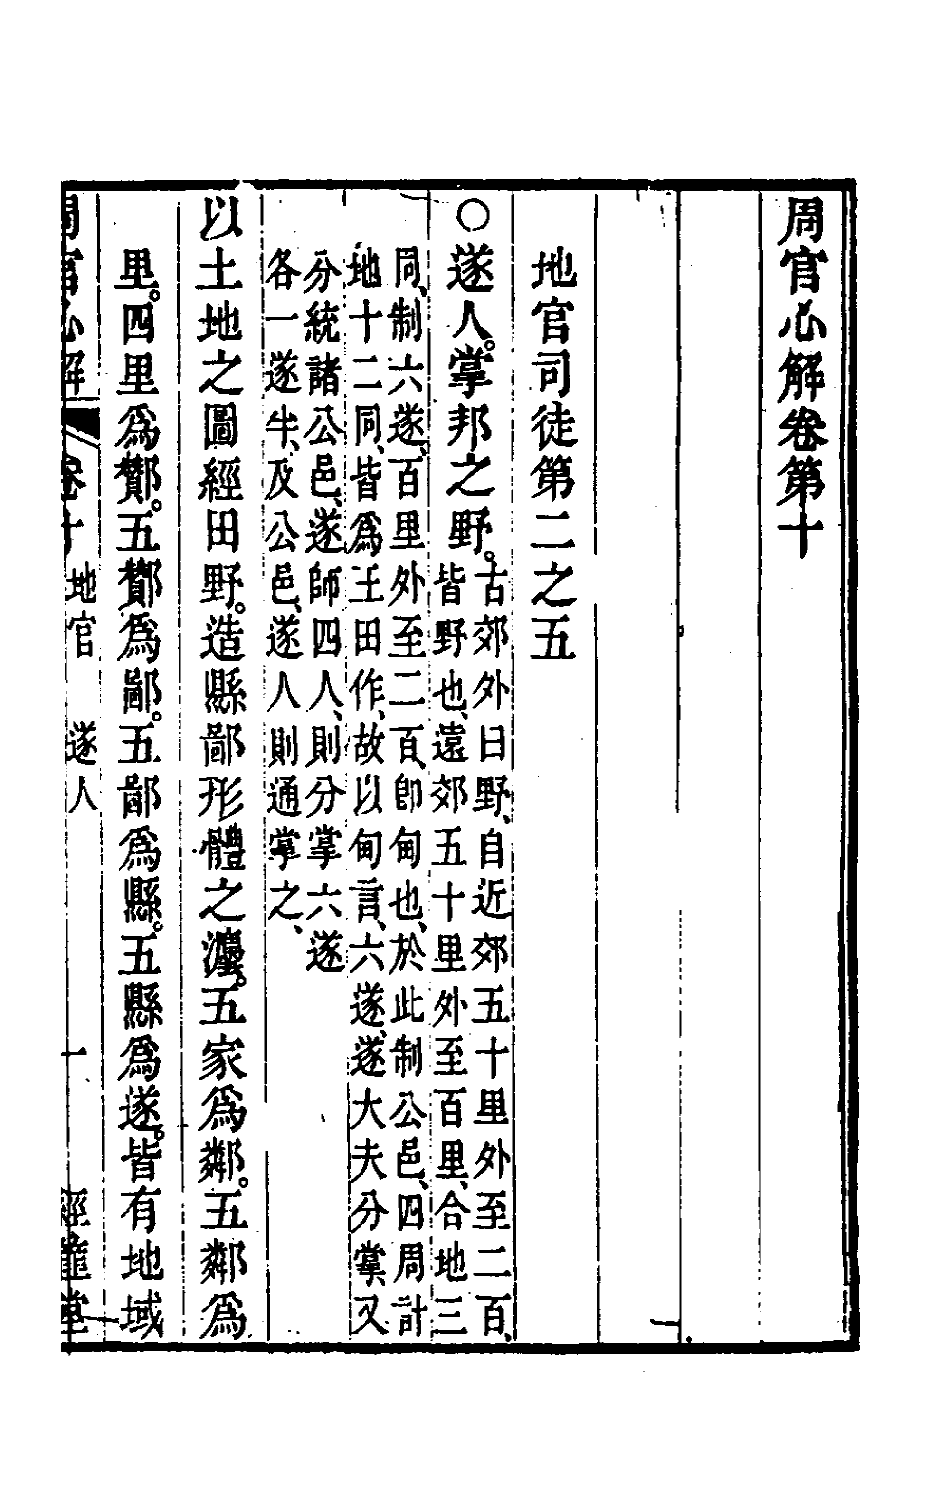 周官心解卷第十
地官司徒第二之五
○遂人。掌邦之野。
古郊外曰野、自近郊五十里外至二百、
皆野也、遠郊五十里外至百里、合地三
同、制六遂、百里外至二百、卽甸也、於此制公邑、四周計
地十二同、皆爲王田作、故以甸言、六遂、遂大夫分掌、又
分統諸公邑、遂師四人、則分掌六遂
各一遂半、及公邑、遂人則通掌之、
以土地之圖經田野。造縣鄙形體之灋。五家爲鄰。五鄰爲
里。四里爲酇。五酇爲鄙。五鄙爲縣。五縣爲遂。皆有地域
周官心解 卷十 地官 遂人 一